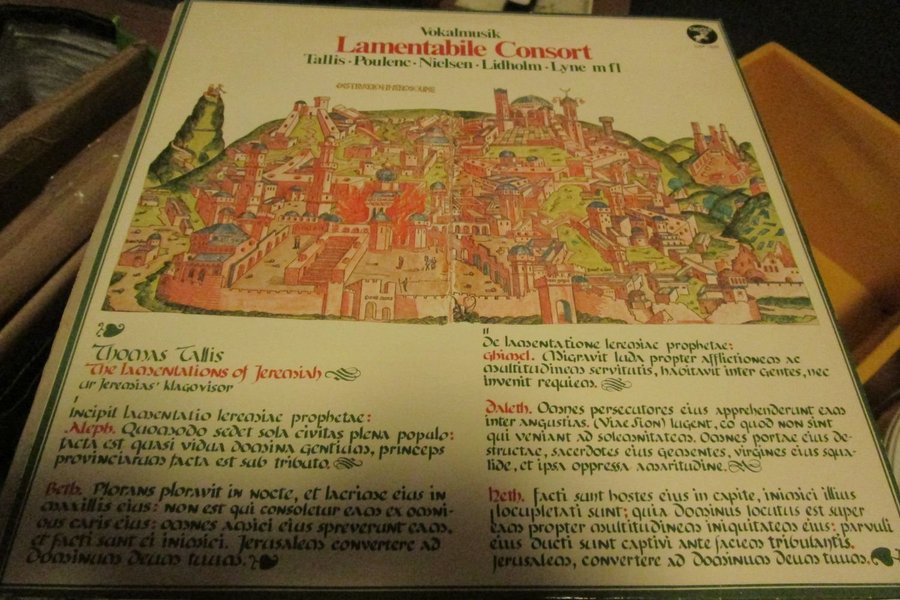 Vokalmusik
Lamentabile Consort
Tallis · Poulenc · Nielsen · Lidholm · Lyne m fl
Thomas Tallis
The lamentations of Jeremiah
ur Jeremias' klagovisor
I
Incipit lamentatio Ieremiae prophetae:
Aleph. Quomodo sedet sola civitas plena populo:
facta est quasi vidua domina gentium, princeps
provinciarum facta est sub tributo.
Beth. Plorans ploravit in nocte, et lacrime eius in
maxillis eius: non est qui consoletur eam ex omni-
bus caris eius: omnes amici eius spreverunt eam,
et facti sunt ei inimici. Jerusalem convertere ad
Dominum Deum tuum.
II
De lamentatione Ieremiae prophetae:
Ghimel. Migravit Iuda propter afflictionem ac
multitudinem servitutis, habitavit inter gentes, nec
invenit requiem.
Daleth. Omnes persecutores eius apprehenderunt eam
inter angustias. (Viae Sion) lugent, eo quod non sint
qui veniant ad solemnitatem. Omnes portae eius de-
structae, sacerdotes eius gementes, virgines eius squa-
lide, et ipsa oppressa amaritudine.
Heth. Facti sunt hostes eius in capite, inimici illius
locupletati sunt; quia Dominus locutus est super
eam propter multitudinem iniquitatem eius: parvuli
eius ducti sunt captivi ante faciem tribulantis.
Jerusalem, convertere ad Dominum Deum tuum.